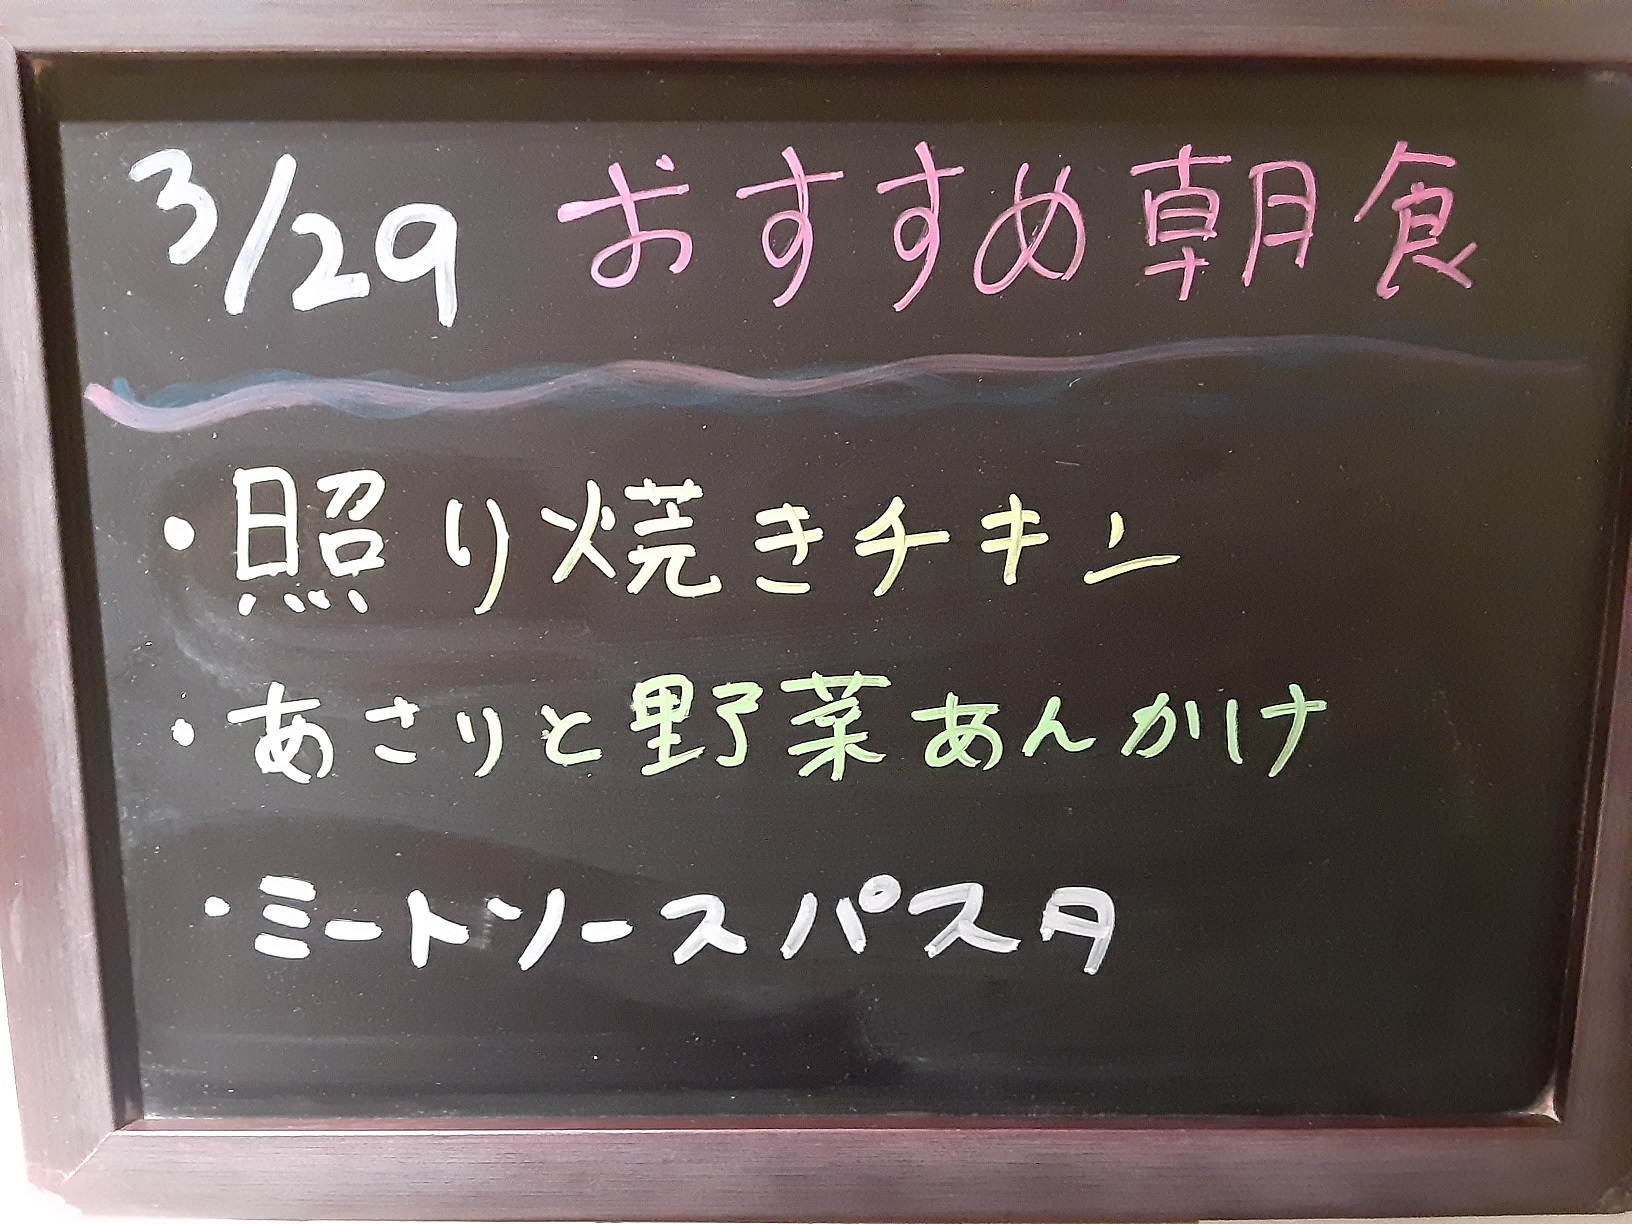 3/29 おすすめ朝食
・照り焼きチキン
・あさりと野菜あんかけ
・ミートソースパスタ